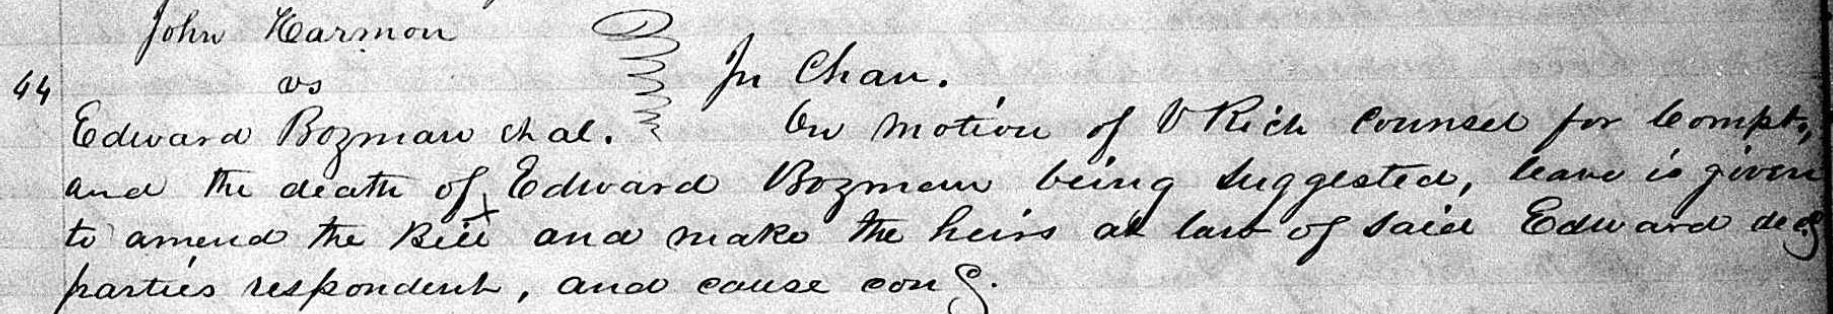 John Harmon
vs
44
In Chan.
Edward Bozman et al.
On motion of V Rich Counsel for Compts,
and the death of Edward Bozman being suggested, leave is given
to amend the Bill and make the heirs at law of said Edward decd
parties respondent, and cause con d.